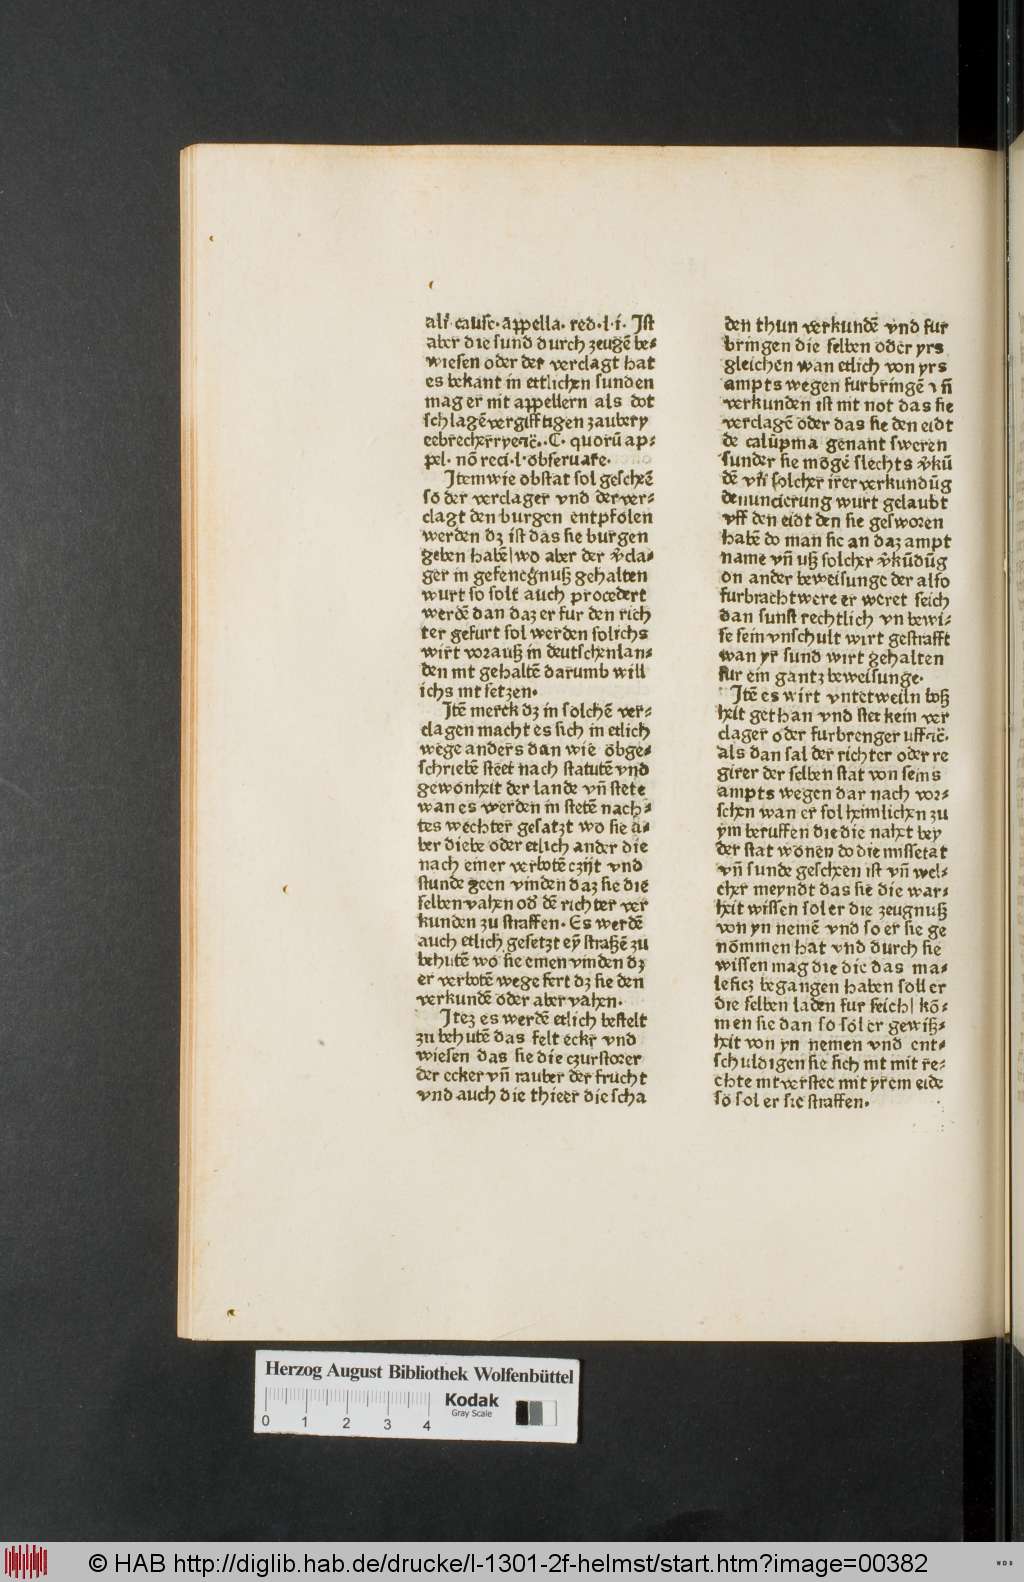 alr̃ cause· appella· red·l·i· Jst
aber die sund durch zeugẽ be⸗
wiesen oder der verclagt hat
es bekant in ettlichen sunden
mag er nit appellern als dot
schlagẽ vergifftigen zaubery
eebrecherrye ⁊c̃·C· quorũ ap⸗
pel· nõ reci·l·obseruare·
Jtem wie obstat sol geschẽ
so der verclager vnd der ver⸗
clagt den burgen entpfolen
werden dz ist das sie burgen
geben habẽ/wo aber der v̾cla⸗
ger in gefencgnuß gehalten
wurt so solt auch procedert
werdẽ dan daz er fur den rich
ter gefurt sol werden solichs
wirt vorauß in deutschen lan⸗
den nit gehaltẽ darumb will
ichs nit setzen·
Jtẽ merck dz in solchẽ ver⸗
clagen macht es sich in etlich
wege anders dan wie obge⸗
schriebẽ steet nach statutẽ vnd
gewonheit der lande vñ stete
wan es werden in stetẽ nach⸗
tes wechter gesatzt wo sie a⸗
ber diebe oder etlich ander die
nach einer verbotẽ czijt vnd
stunde geen vinden daz sie die
selben vahen od̾ dẽ richter ver
kunden zu straffen· Es werdẽ
auch etlich gesetzt ey straßẽ zu
behutẽ wo sie einen vinden dz
er verbotẽ wege fert dz sie den
verkundẽ oder aber vahen·
Jtez es werdẽ etlich bestelt
zu behutẽ das felt eckr vnd
wiesen das sie die czurstorer
der ecker vñ rauber der frucht
vnd auch die thieer die scha
den thun verkundẽ vnd fur
bringen die selben oder yrs
gleichen wan etlich von yrs
ampts wegen furbringẽ vñ
verkunden ist nit not das sie
verclagẽ oder das sie den eidt
de calũpma genant sweren
sunder sie mögẽ slechts v̾kũ
dẽ vñ solcher irer verkundũg
denuncierung wurt gelaubt
vff den eidt den sie gesworen
habẽ do man sie an daz ampt
name vñ uß solcher v̾kũdũg
on ander beweisunge der also
furbracht were er weret seich
dan sunst rechtlich vn bewi⸗
se sein vnschult wirt gestrafft
wan yr sund wirt gehalten
fur ein gantz beweisunge·
Jtẽ es wirt vntetweiln boß
heit gethan vnd stet kein ver
clager oder furbrenger uff ⁊c̃·
als dan sal der richter oder re
girer der selben stat von seins
ampts wegen dar nach vor⸗
schen wan er sol heimlichen zu
ym beruffen die die nahet bey
der stat wonen do die missetat
vñ sunde gescheen ist vñ wel⸗
cher meyndt das sie die war⸗
heit wissen sol er die zeugnuß
von yn nemẽ vnd so er sie ge
nommen hat vnd durch sie
wissen mag die die das ma⸗
leficz begangen haben soll er
die selben laden fur seich/ kõ⸗
men sie dan so sol er gewiß⸗
heit von yn nemen vnd ent⸗
schuldigen sie sich nit mit re⸗
chte nit verstee mit yrem eide
so sol er sie straffen·
Herzog August Bibliothek Wolfenbüttel
0 1 2 3 4
Kodak
Gray Scale
© HAB http://diglib.hab.de/drucke/l-1301-2f-helmst/start.htm?image=00382
WDB